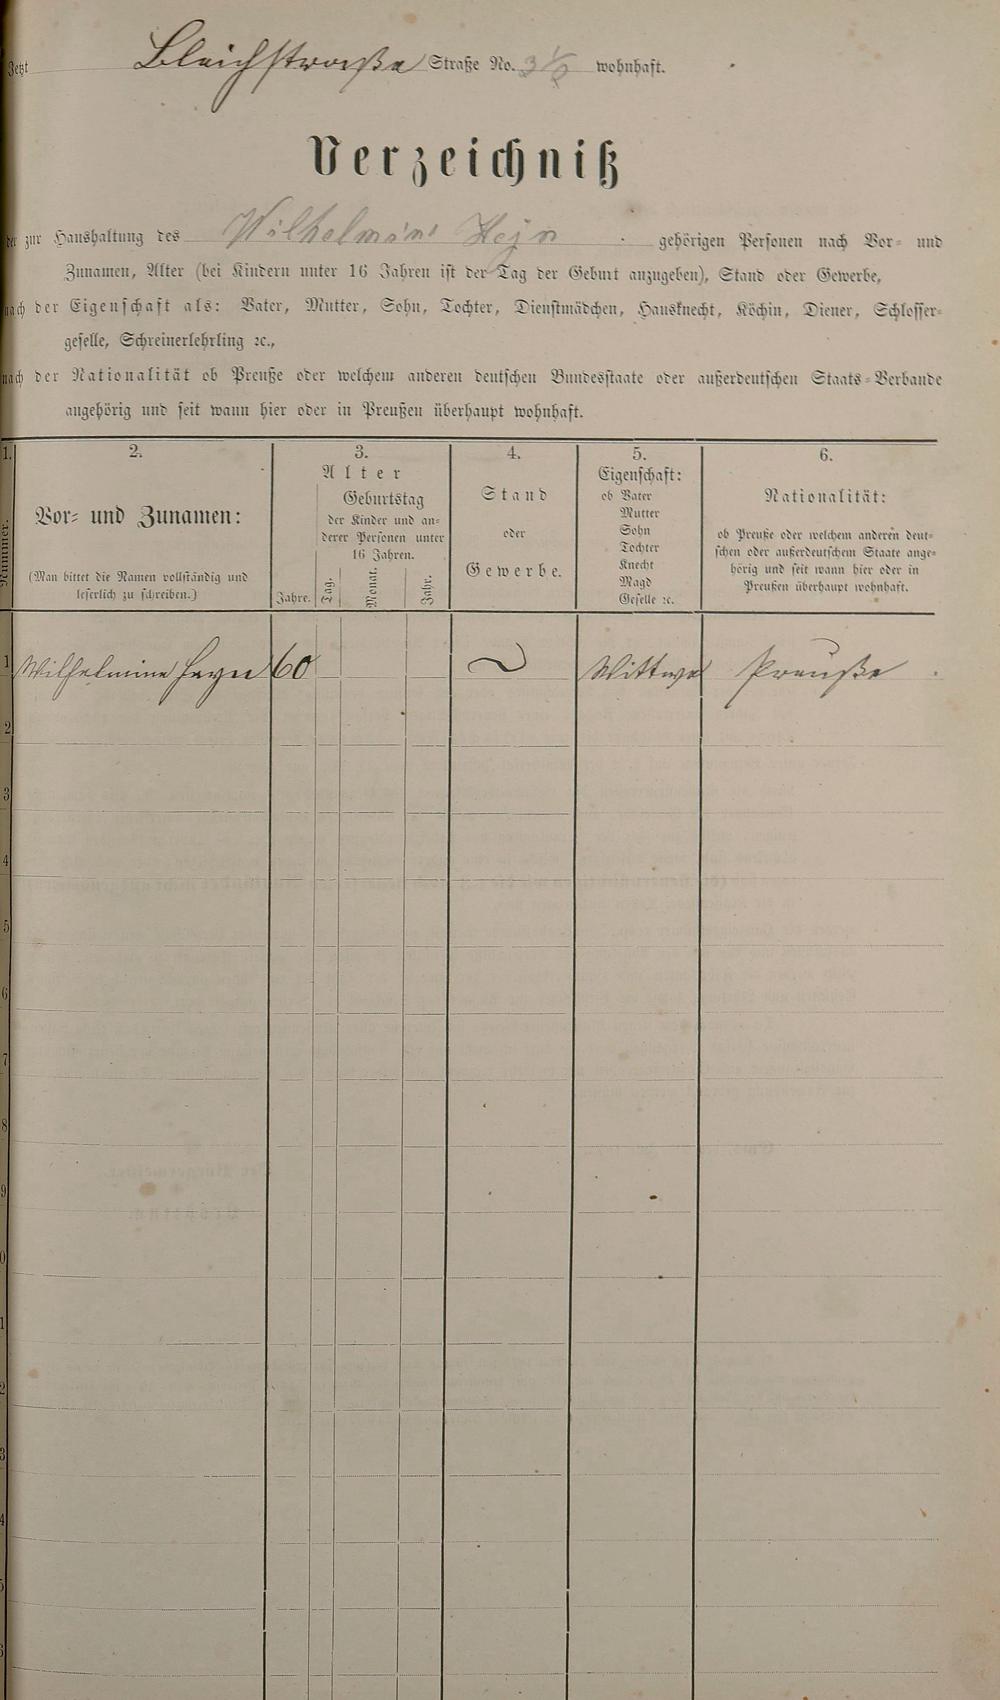 Jetzt Bleichstraße Straße No. 3 1/2 wohnhaft.
Verzeichniß
der zur Haushaltung des Wilhelmine gehörigen Personen nach Vor- und
Zunamen, Alter (bei Kindern unter 16 Jahren ist der Tag der Geburt anzugeben), Stand oder Gewerbe,
nach der Eigenschaft als: Vater, Mutter, Sohn, Tochter, Dienstmädchen, Hausknecht, Köchin, Diener, Schlosser-
geselle, Schreinerlehrling ꝛc.,
nach der Nationalität ob Preuße oder welchem anderen deutschen Bundesstaate oder außerdeutschen Staats-Verbande
angehörig und seit wann hier oder in Preußen überhaupt wohnhaft.
1.
Nummer.
2.
Vor- und Zunamen:
(Man bittet die Namen vollständig und
leserlich zu schreiben.)
3.
Alter
Jahre.
Geburtstag
der Kinder und an-
derer Personen unter
16 Jahren.
Tag.
Monat.
Jahr.
4.
Stand
oder
Gewerbe.
5.
Eigenschaft:
ob Vater
Mutter
Sohn
Tochter
Knecht
Magd
Geselle ꝛc.
6.
Nationalität:
ob Preuße oder welchem anderen deut-
schen oder außerdeutschem Staate ange-
hörig und seit wann hier oder in
Preußen überhaupt wohnhaft.
1 Wilhelmine 60 Wittwe Preuße
2
3
4
5
6
7
8
9
0
1
2
3
4
5
6